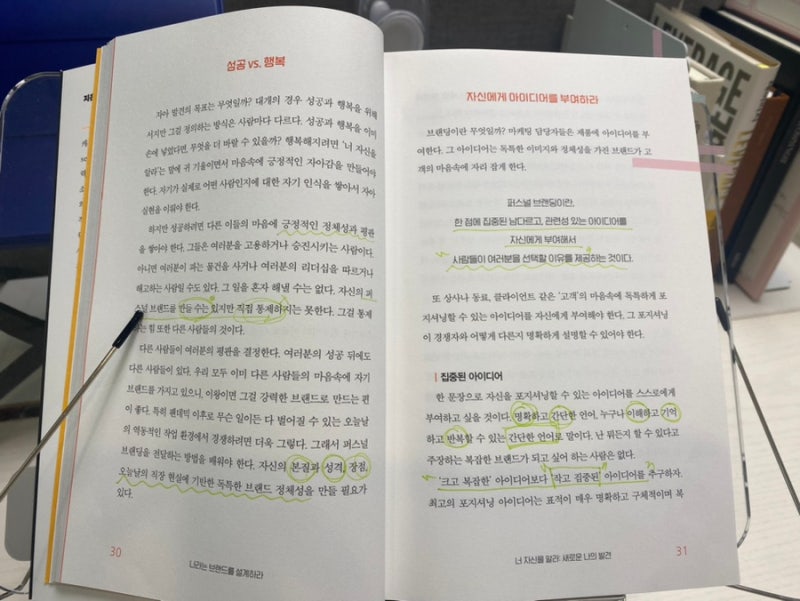 성공 vs. 행복
자아 발견의 목표는 무엇일까? 대개의 경우 성공과 행복을 위해
서지만 그걸 정의하는 방식은 사람마다 다르다. 성공과 행복을 이미
손에 넣었다면, 무엇을 더 바랄 수 있을까? 행복해지려면 '너 자신을
알라'는 말에 귀 기울이면서 마음속에 긍정적인 자아감을 만들어야
한다. 자기가 실제로 어떤 사람인지에 대한 자기 인식을 쌓아서 자아
실현을 이뤄야 한다.
하지만 성공하려면 다른 이들의 마음에 긍정적인 정체성과 평판
을 쌓아야 한다. 그들은 여러분을 고용하거나 승진시키는 사람이다.
아니면 여러분이 파는 물건을 사거나 여러분의 리더십을 따르거나
해고하는 사람일 수도 있다. 그 일을 혼자 해낼 수는 없다. 자신의 퍼
스널 브랜드를 만들 수는 있지만 직접 통제하지는 못한다. 그걸 통제
하는 힘 또한 다른 사람들의 것이다.
다른 사람들이 여러분의 평판을 결정한다. 여러분의 성공 뒤에도
다른 사람들이 있다. 우리 모두 이미 다른 사람들의 마음속에 자기
브랜드를 가지고 있으니, 이왕이면 그걸 강력한 브랜드로 만드는 편
이 좋다. 특히 팬데믹 이후로 무슨 일이든 다 벌어질 수 있는 오늘날
의 역동적인 작업 환경에서 경쟁하려면 더욱 그렇다. 그래서 퍼스널
브랜딩을 전달하는 방법을 배워야 한다. 자신의 본질과 성격, 강점,
오늘날의 직장 현실에 기반한 독특한 브랜드 정체성을 만들 필요가
있다.
30
나라는 브랜드를 설계하라
자신에게 아이디어를 부여하라
브랜딩이란 무엇일까? 마케팅 담당자들은 제품에 아이디어를 부
여한다. 그 아이디어는 독특한 이미지와 정체성을 가진 브랜드가 고
객의 마음속에 자리 잡게 한다.
퍼스널 브랜딩이란,
한 점에 집중된 남다르고, 관련성 있는 아이디어를
자신에게 부여해서
사람들이 여러분을 선택할 이유를 제공하는 것이다.
또 상사나 동료, 클라이언트 같은 '고객'의 마음속에 독특하게 포
지셔닝할 수 있는 아이디어를 자신에게 부여해야 한다. 그 포지셔닝
이 경쟁자와 어떻게 다른지 명확하게 설명할 수 있어야 한다.
집중된 아이디어
한 문장으로 자신을 포지셔닝할 수 있는 아이디어를 스스로에게
부여하고 싶을 것이다. 명확하고 간단한 언어, 누구나 이해하고 기억
하고 반복할 수 있는 간단한 언어로 말이다. 난 뭐든지 할 수 있다고
주장하는 복잡한 브랜드가 되고 싶어 하는 사람은 없다.
'크고 복잡한' 아이디어보다 '작고 집중된' 아이디어를 추구하자.
최고의 포지셔닝 아이디어는 표적이 매우 명확하고 구체적이며 복
너 자신을 알라: 새로운 나의 발견
31
LEVERAGE